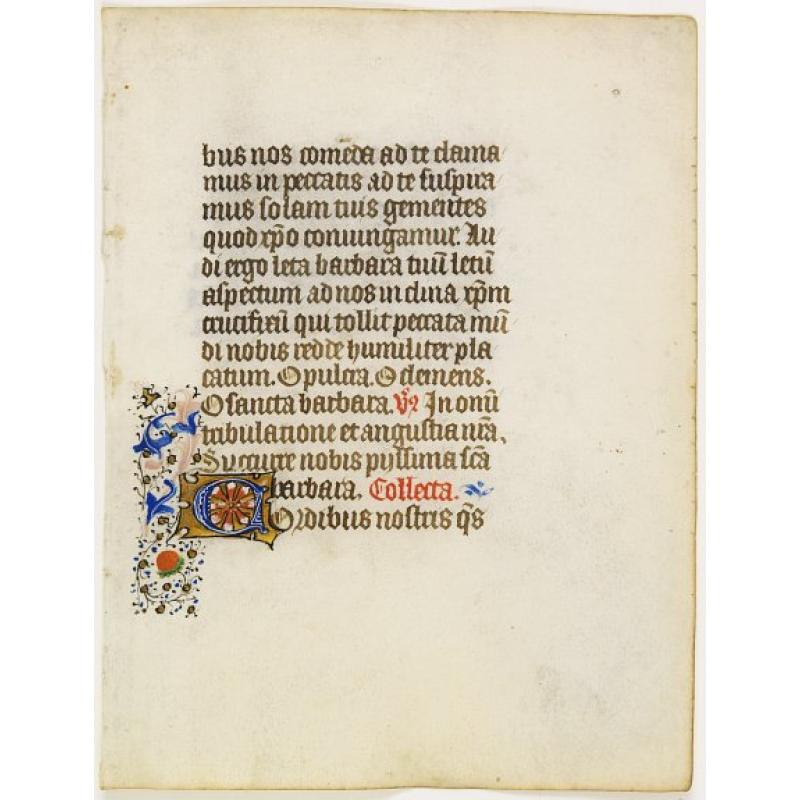 bus nos com̄eda ad te clama
mus in peccatis ad te suspira
mus solam tuis gementes
quod xp̄o coniungamur. Au
di ergo leta barbara tuū letū
aspectum ad nos inclina xp̄m
crucifixū qui tollit peccata mū
di nobis redde humiliter pla
catum. O pulcra. O clemens.
O sancta barbara. V̓ꝝ In om̄i
tribulatione et angustia nr̄a.
Succurre nobis pijssima sc̄a
barbara. Collecta.
Cordibus nostris q̄s